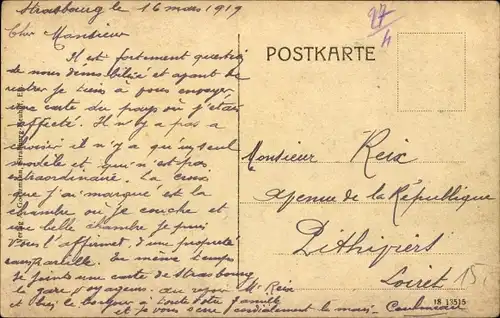 Strasbourg le 16 mars 1919
Cher Monsieur
Il est fortement question
de nous démobilisé et ayant de
rentrer je tiens à vous envoyer
une carte du pays ou j'étais
affecté. Il n'y a pas a
choisir il n'y a qu'un seul
modèle et qui n'est pas
extraordinaire. La croix
que j'ai marqué est la
chambre ou je couche et
une belle chambre je puis
vous l'affirmer, d'une propreté
sans pareille. En même temps
je joints une carte de Strasbourg
la gare voyageurs. au revoir Mr Reix
et bien le bonjour à toute votre famille
et je vous serre cordialement la main
POSTKARTE
27
4
Monsieur Reix
Avenue de la République
Pithiviers
Loiret
15.
18 13515